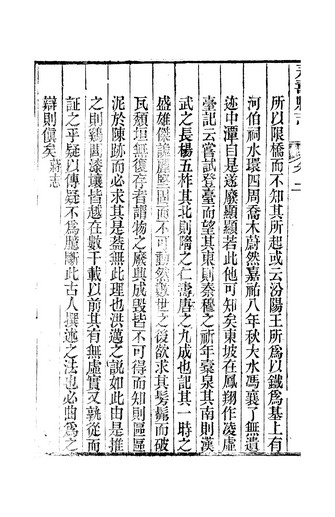 所以限橋而不知其所起或云汾陽王所爲以鐵爲基上有
河伯祠水環四周喬木蔚然嘉祐八年秋大水馮襄了無遺
迹中潭自是遂廢顯顯若此他可知矣東坡在鳳翔作凌虛
臺記云嘗試登臺而望其東則秦穆之祈年橐泉其南則漢
武之長楊五柞其北則隋之仁壽唐之九成也記其一時之
盛雄傑詭麗堅固而不可動然數世之後欲求其髣髴而破
瓦頹垣無復存者謂物之廢興成毀皆不可得而知則區區
泥於陳跡而必求其是葢無此理也洪邁之說如此由是推
之則鷄閣漆㙻皆越在數千載以前其有無虛實又孰從而
証之乎疑以傳疑不爲臆斷此古人撰述之法也必曲爲之
辯則傎矣蔣志